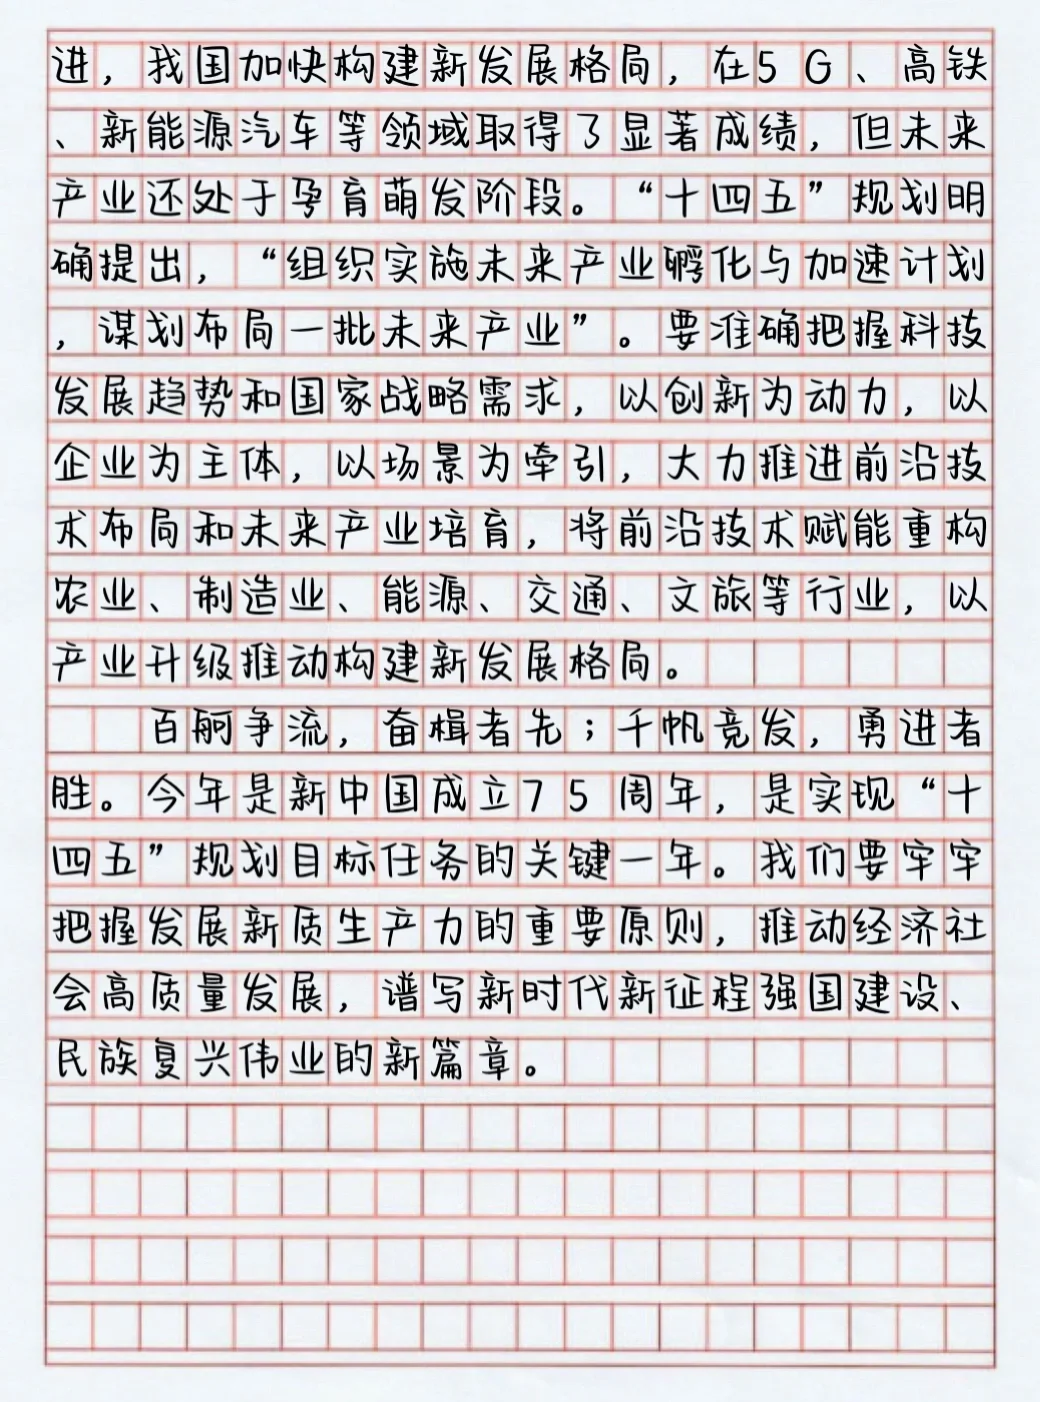 进，我国加快构建新发展格局，在5G、高铁
、新能源汽车等领域取得了显著成绩，但未来
产业还处于孕育萌发阶段。“十四五”规划明
确提出，“组织实施未来产业孵化与加速计划
，谋划布局一批未来产业”。要准确把握科技
发展趋势和国家战略需求，以创新为动力，以
企业为主体，以场景为牵引，大力推进前沿技
术布局和未来产业培育，将前沿技术赋能重构
农业、制造业、能源、交通、文旅等行业，以
产业升级推动构建新发展格局。
百舸争流，奋楫者先；千帆竞发，勇进者
胜。今年是新中国成立75周年，是实现“十
四五”规划目标任务的关键一年。我们要牢牢
把握发展新质生产力的重要原则，推动经济社
会高质量发展，谱写新时代新征程强国建设、
民族复兴伟业的新篇章。